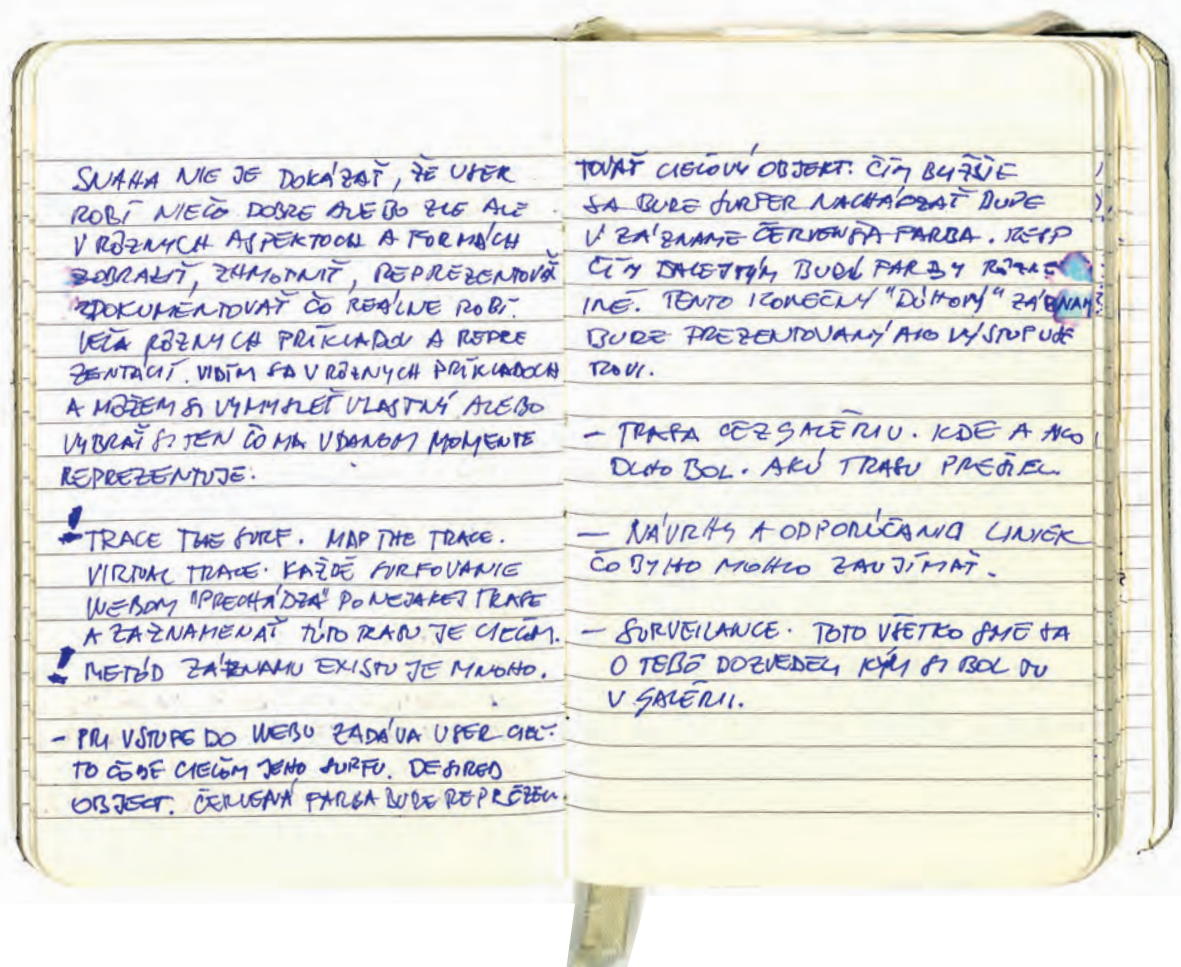 SNAHA NIE JE DOKÁZAŤ, ŽE USER
ROBÍ NIEČO DOBRE ALEBO ZLE ALE
V RÔZNYCH ASPEKTOCH A FORMÁCH
ZOBRAZIŤ, ZHMOTNIŤ, REPREZENTOVAŤ
ZDOKUMENTOVAŤ ČO REÁLNE ROBÍ.
VEĽA RÔZNYCH PRÍKLADOV A REPRE
ZENTÁCIÍ. VIDÍM SA V RÔZNYCH PRÍKLADOCH
A MÔŽEM SI VYMYSLEŤ VLASTNÝ ALEBO
VYBRAŤ SI TEN ČO MA V DANOM MOMENTE
REPREZENTUJE.
! TRACE THE SURF. MAP THE TRACE.
VIRTUAL TRACE. KAŽDÉ SURFOVANIE
WEBOM "PRECHÁDZA" PO NEJAKEJ TRASE
A ZAZNAMENAŤ TÚTO TRASU JE CIEĽOM.
! METÓD ZÁZNAMU EXISTUJE MNOHO.
- PRI VSTUPE DO WEBU ZADÁVA USER CIEĽ.
TO ČO JE CIEĽOM JEHO SURFU. DESIRED
OBJECT. ČERVENÁ FARBA BUDE REPREZEN
TOVAŤ CIEĽOVÝ OBJEKT. ČÍM BLIŽŠIE
SA BUDE SURFER NACHÁDZAŤ BUDE
V ZÁZNAME ČERVENŠIA FARBA. RESP
ČÍM ĎALEJ TÝM BUDÚ FARBY RÔZNE
INÉ. TENTO KONEČNÝ "DÚHOVÝ" ZÁZNAM
BUDE PREZENTOVANÝ AKO VÝSTUP UŽÍ
TROVI.
- TRASA CEZ GALÉRIU. KDE A AKO
DLHO BOL. AKÚ TRASU PREŠIEL.
- NÁVRHY A ODPORÚČANIA LINIEK
ČO BY HO MOHLO ZAUJÍMAŤ.
- SURVEILANCE. TOTO VŠETKO SME SA
O TEBE DOZVEDELI KÝM SI BOL TU
V GALÉRII.